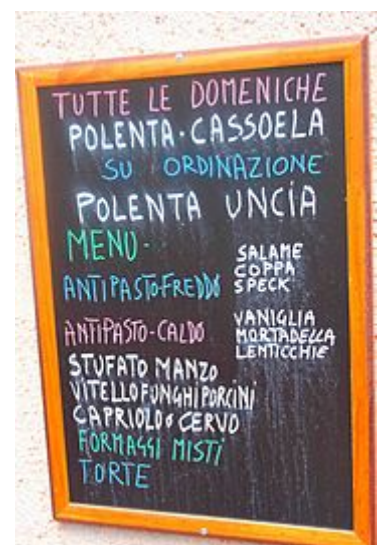 TUTTE LE DOMENICHE
POLENTA·CASSOELA
SU ORDINAZIONE
POLENTA UNCIA
MENU·
ANTIPASTO-FREDDO
SALAME
COPPA
SPECK
ANTIPASTO-CALDO
VANIGLIA
MORTADELLA
LENTICCHIE
STUFATO MANZO
VITELLO FUNGHI PORCINI
CAPRIOLO o CERVO
FORMAGGI MISTI
TORTE